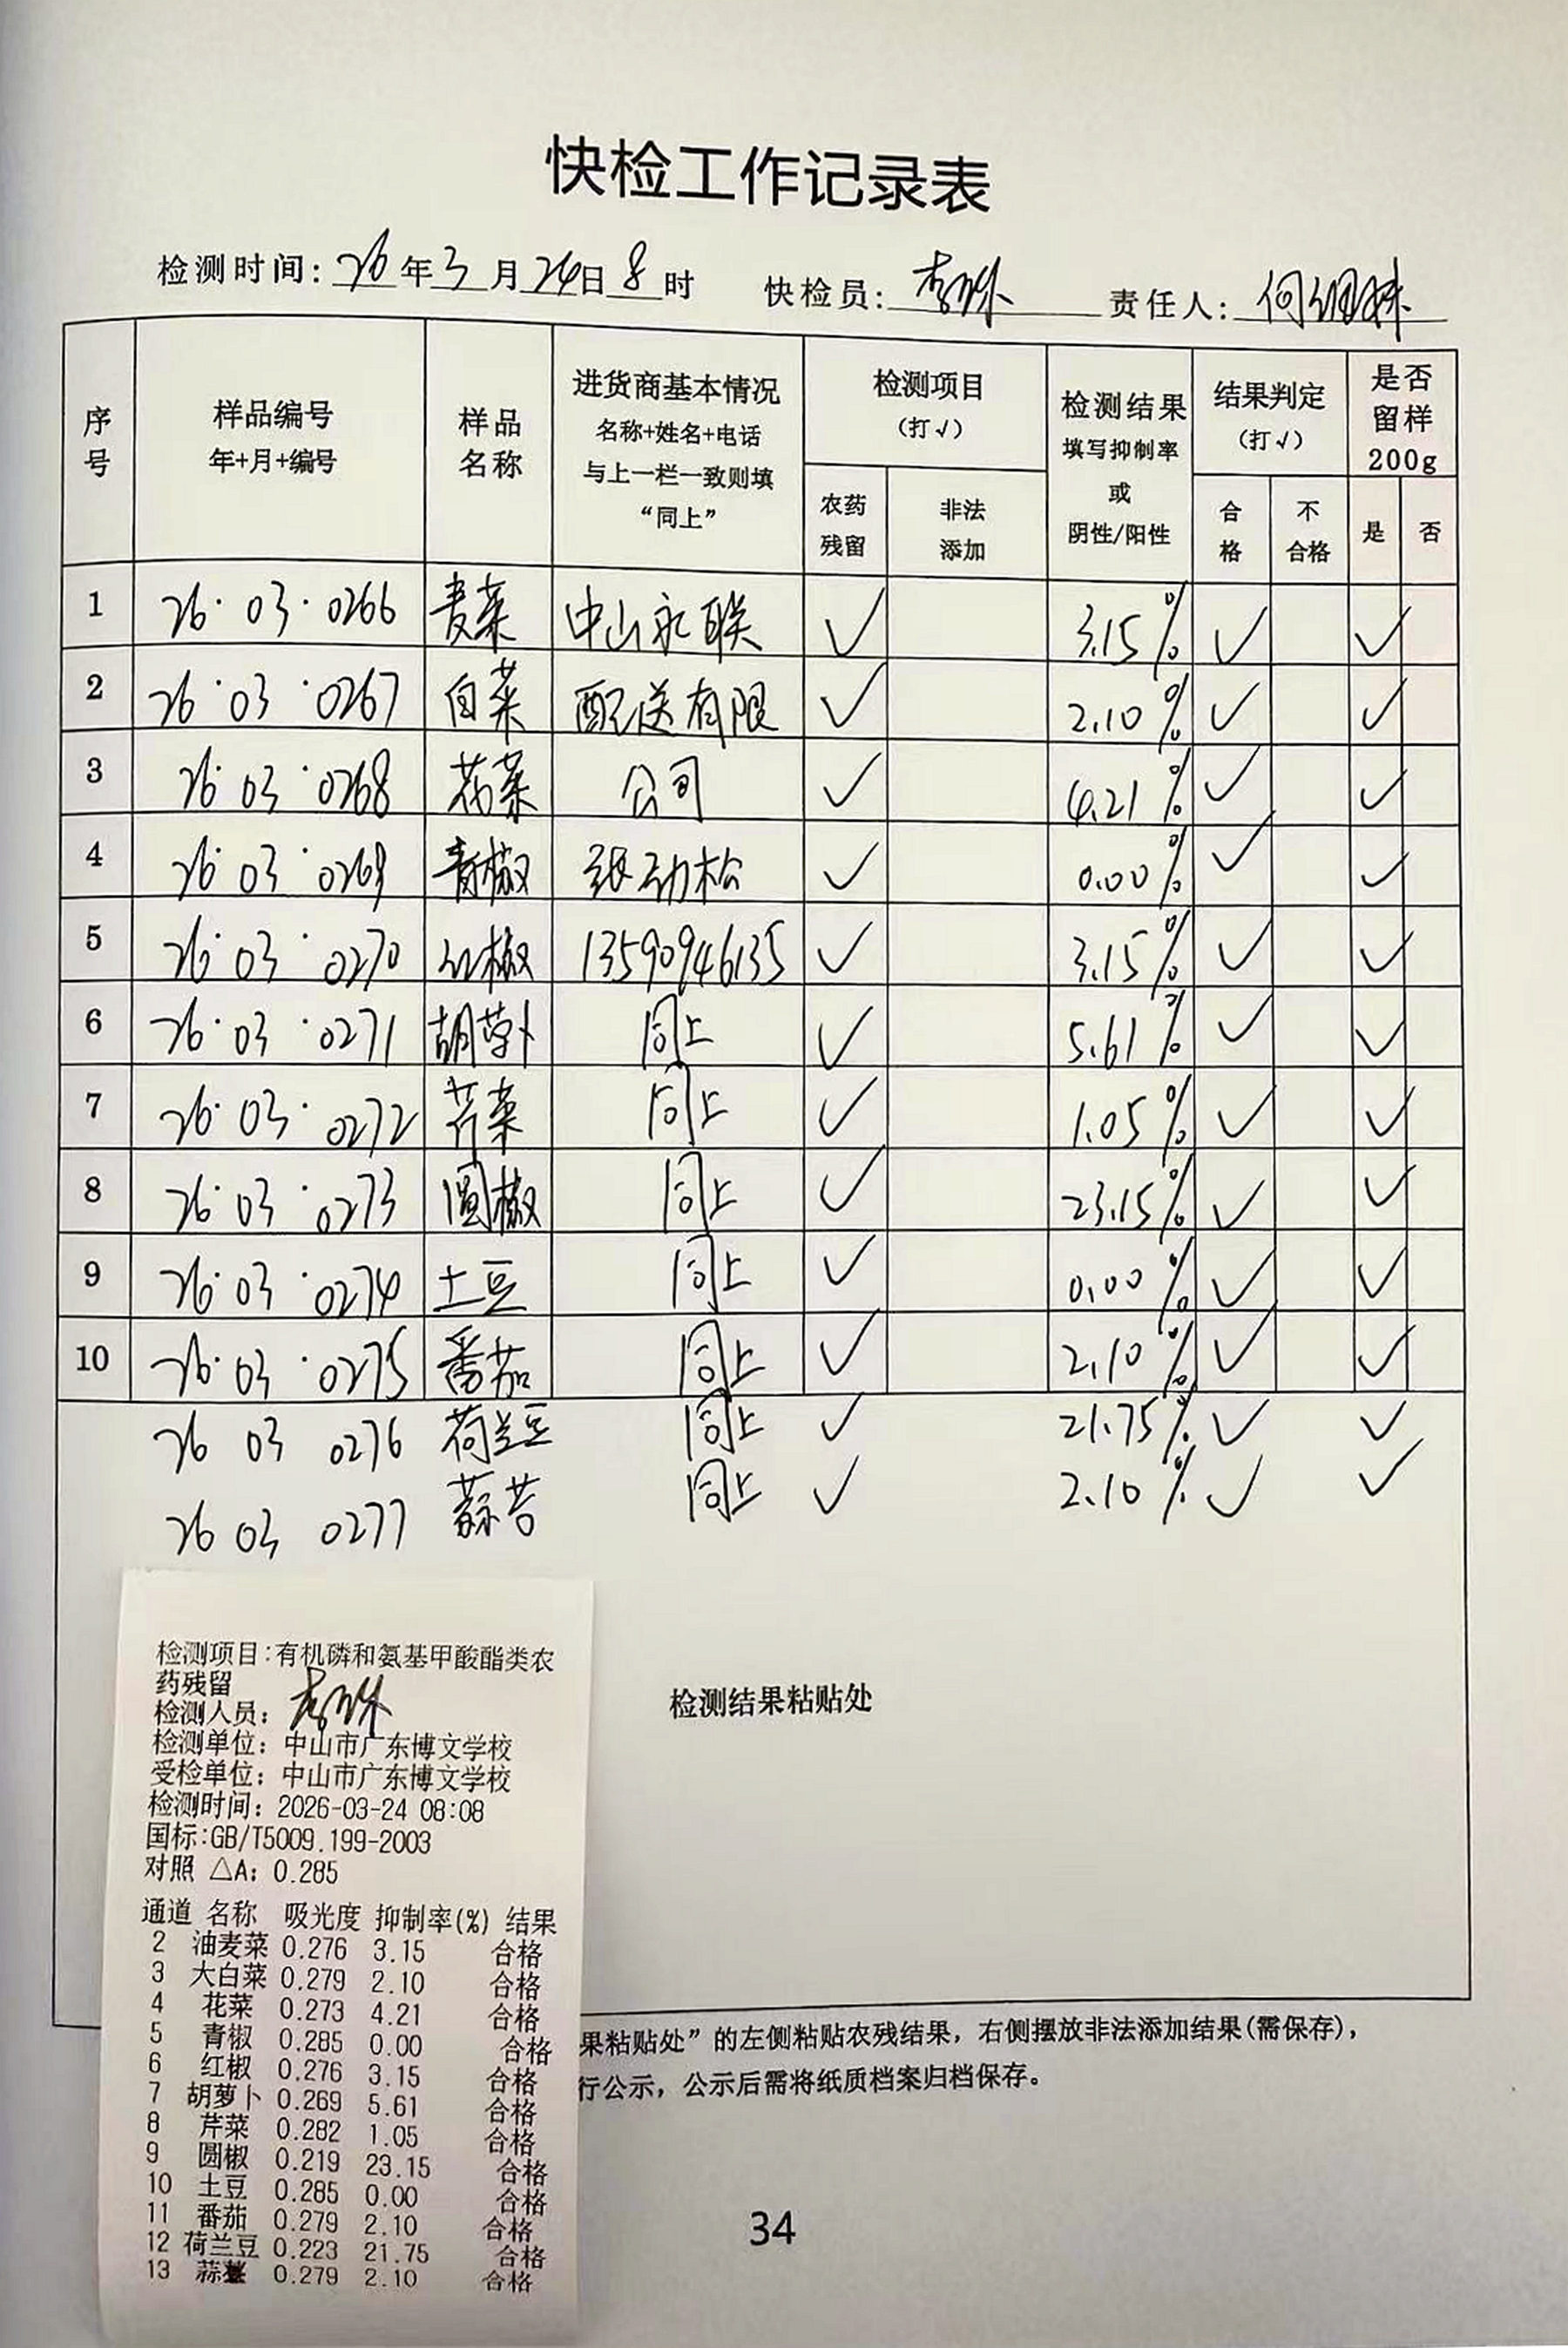 快检工作记录表
检测时间: 26年3月24日8时 快检员: 责任人:
序号 样品编号 年+月+编号 样品名称 进货商基本情况 名称+姓名+电话 与上一栏一致则填 “同上” 检测项目 (打√) 农药残留 非法添加 检测结果 填写抑制率 或 阴性/阳性 结果判定 (打√) 合格 不合格 是否留样 200g 是 否
1 26·03·0266 麦菜 中山永联 √ 3.15% √ √
2 26·03·0267 白菜 配送有限 √ 2.10% √ √
3 26·03·0268 花菜 公司 √ 4.21% √ √
4 26·03·0269 青椒 张劲松 √ 0.00% √ √
5 26·03·0270 红椒 13590946135 √ 3.15% √ √
6 26·03·0271 胡萝卜 同上 √ 5.61% √ √
7 26·03·0272 芹菜 同上 √ 1.05% √ √
8 26·03·0273 圆椒 同上 √ 23.15% √ √
9 26·03·0274 土豆 同上 √ 0.00% √ √
10 26·03·0275 番茄 同上 √ 2.10% √ √
26 03 0276 荷兰豆 同上 √ 21.75% √ √
26 03 0277 同上 √ 2.10% √ √
检测结果粘贴处
检测项目:有机磷和氨基甲酸酯类农
药残留
检测人员:
检测单位: 中山市广东博文学校
受检单位: 中山市广东博文学校
检测时间: 2026-03-24 08:08
国标:GB/T5009.199-2003
对照 △A: 0.285
通道 名称 吸光度 抑制率(%) 结果
2 油麦菜 0.276 3.15 合格
3 大白菜 0.279 2.10 合格
4 花菜 0.273 4.21 合格
5 青椒 0.285 0.00 合格
6 红椒 0.276 3.15 合格
7 胡萝卜 0.269 5.61 合格
8 芹菜 0.282 1.05 合格
9 圆椒 0.219 23.15 合格
10 土豆 0.285 0.00 合格
11 番茄 0.279 2.10 合格
12 荷兰豆 0.223 21.75 合格
13 蒜薹 0.279 2.10 合格
果粘贴处”的左侧粘贴农残结果，右侧摆放非法添加结果(需保存)，
行公示，公示后需将纸质档案归档保存。
34